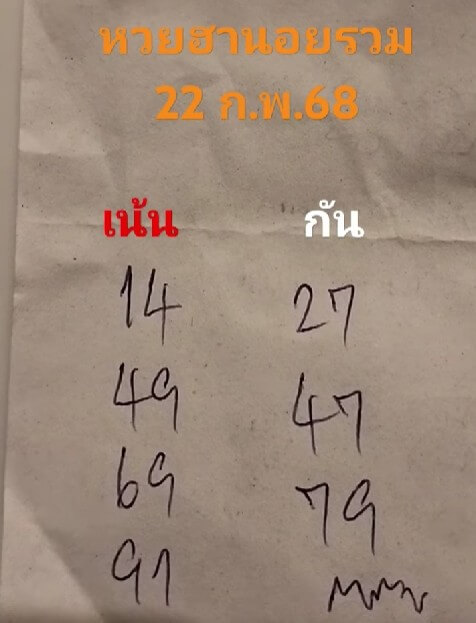 หวยฮานอยรวม
22 ก.พ.68
เน้น กัน
14 27
49 47
69 79
91